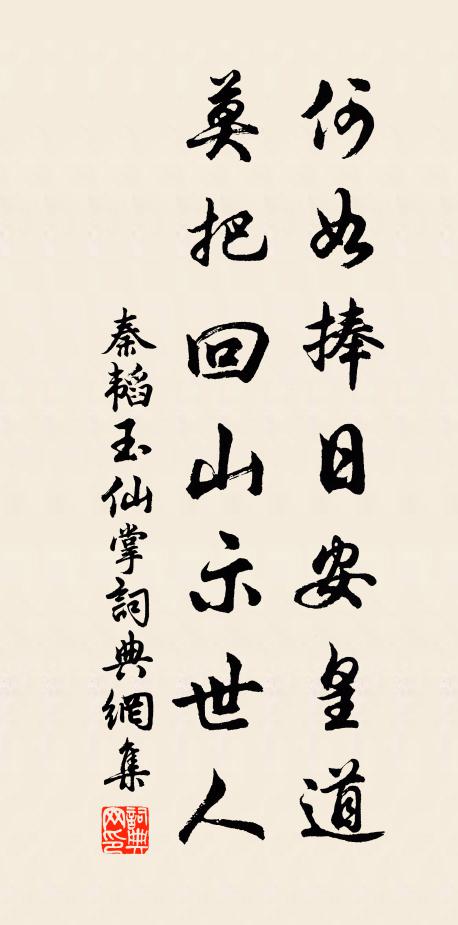 何如捧日安皇道
莫把回山示世人
秦韜玉仙掌詞典網集
詞典
网印